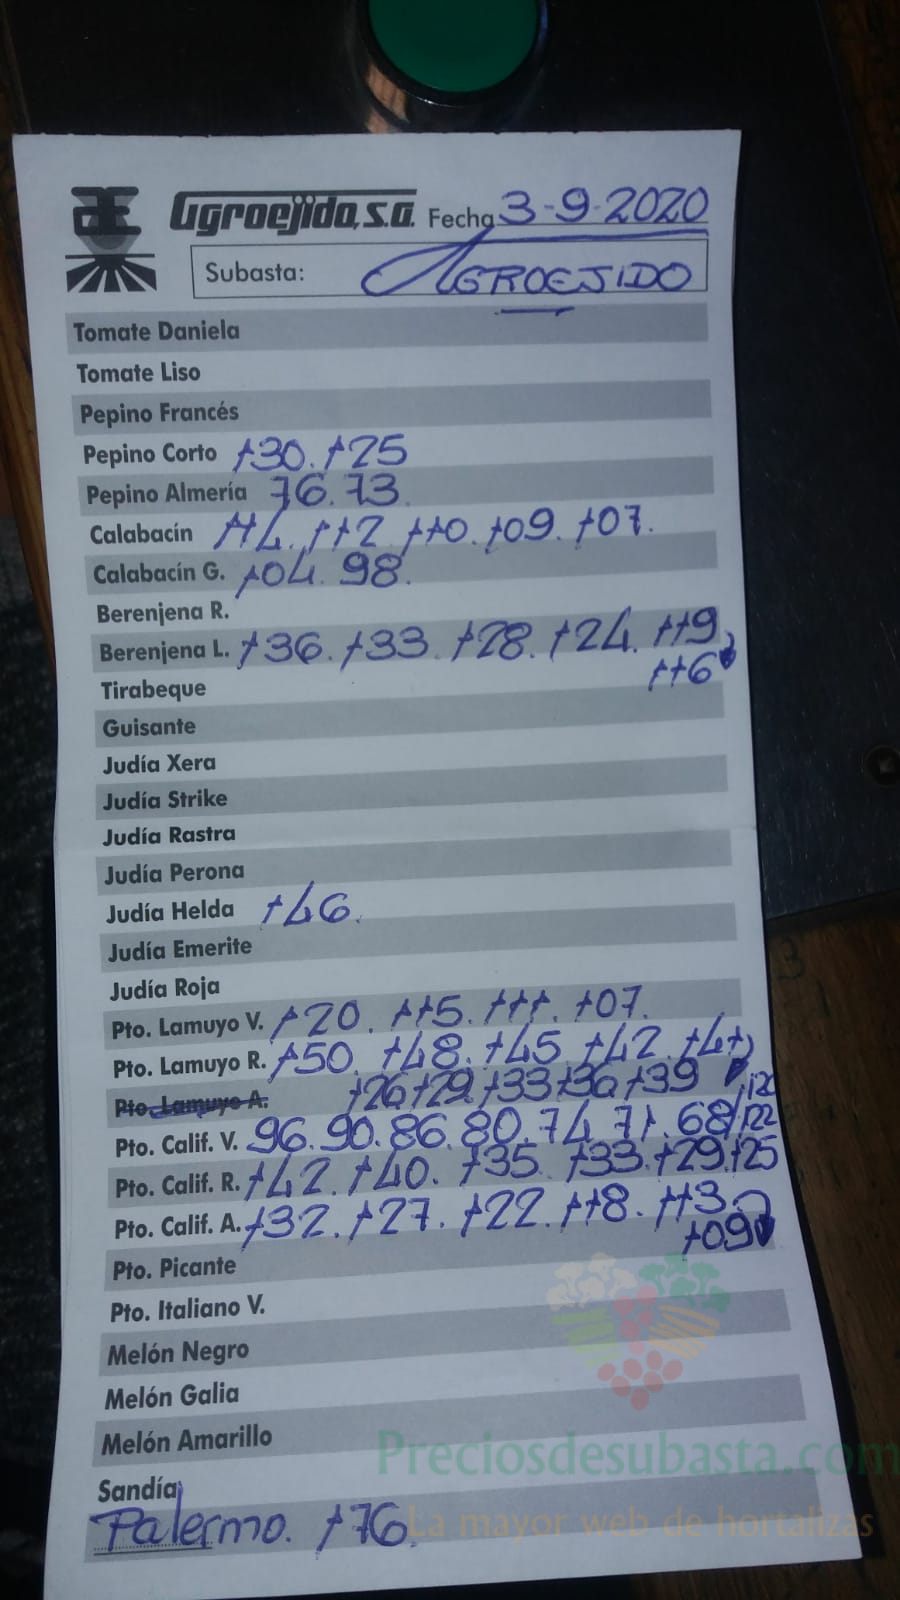 Agroejido, s.a. Fecha 3-9-2020
Subasta: AGROEJIDO
Tomate Daniela
Tomate Liso
Pepino Francés
Pepino Corto 130. 125
Pepino Almería 76. 73.
Calabacín 114. 112. 110. 109. 107.
Calabacín G. 104. 98.
Berenjena R.
Berenjena L. 136. 133. 128. 124. 119,
116
Tirabeque
Guisante
Judía Xera
Judía Strike
Judía Rastra
Judía Perona
Judía Helda 146.
Judía Emerite
Judía Roja
Pto. Lamuyo V. 120. 115. 111. 107.
Pto. Lamuyo R. 150. 148. 145 142. 141
Pto. Lamuyo A. 126 129. 133 136 139
Pto. Calif. V. 96. 90. 86. 80. 74. 71. 68
120
122
Pto. Calif. R. 142. 140. 135. 133. 129. 125
Pto. Calif. A. 132. 127. 122. 118. 113.
109
Pto. Picante
Pto. Italiano V.
Melón Negro
Melón Galia
Melón Amarillo
Sandía
Palermo. 176.
Preciosdesubasta.com
La mayor web de hortalizas